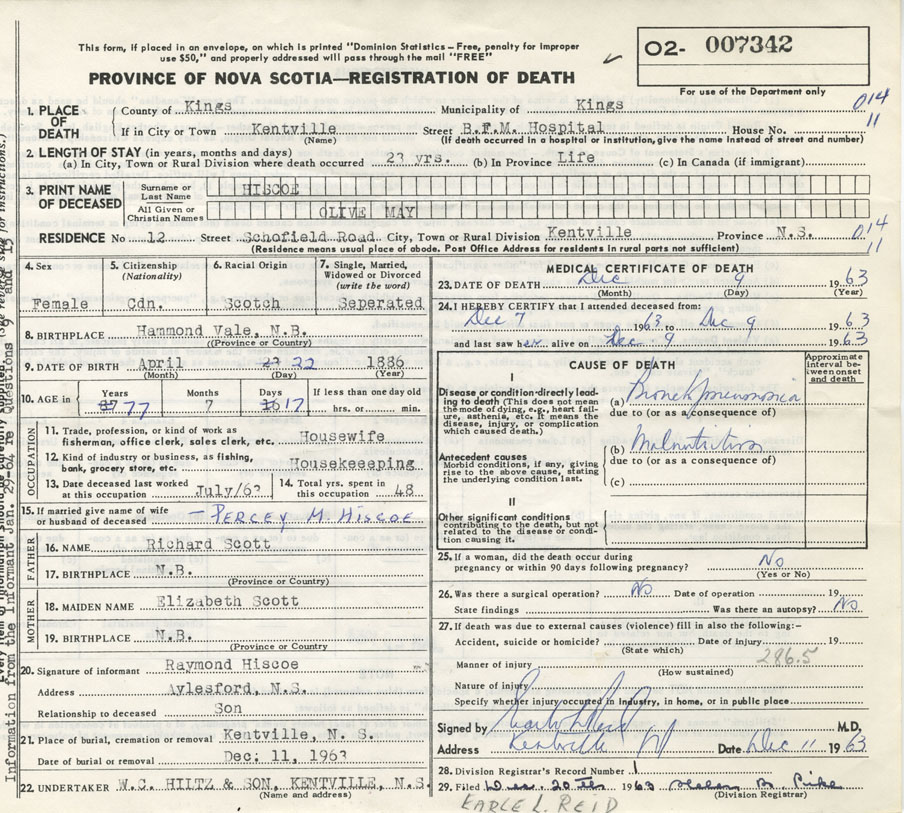 This form, if placed in an envelope, on which is printed "Dominion Statistics – Free, penalty for improper
use $50," and properly addressed will pass through the mail "FREE"
O2- 007342
For use of the Department only
PROVINCE OF NOVA SCOTIA—REGISTRATION OF DEATH
1. PLACE OF DEATH
County of Kings Municipality of Kings 014
If in City or Town Kentville Street B.F.M. Hospital House No. 11
(Name) (If death occurred in a hospital or institution, give the name instead of street and number)
2. LENGTH OF STAY (in years, months and days)
(a) In City, Town or Rural Division where death occurred 23 yrs. (b) In Province Life (c) In Canada (if immigrant)
3. PRINT NAME OF DECEASED
Surname or Last Name HISCOE
All Given or Christian Names OLIVE MAY
RESIDENCE No 12 Street Schofield Road City, Town or Rural Division Kentville Province N.S. 014
11
(Residence means usual place of abode. Post Office Address for residents in rural parts not sufficient)
4. Sex
Female
5. Citizenship
(Nationality)
Cdn.
6. Racial Origin
Scotch
7. Single, Married, Widowed or Divorced
(write the word)
Seperated
8. BIRTHPLACE Hammond Vale, N.B.
(Province or Country)
9. DATE OF BIRTH April 22 1886
(Month) (Day) (Year)
10. AGE in
Years Months Days If less than one day old
77 7 17 hrs. or min.
OCCUPATION
11. Trade, profession, or kind of work as
fisherman, office clerk, sales clerk, etc. Housewife
12. Kind of industry or business, as fishing,
bank, grocery store, etc. Housekeeeping
13. Date deceased last worked
at this occupation July/63
14. Total yrs. spent in
this occupation 48
15. If married give name of wife
or husband of deceased – PERCEY M. HISCOE
FATHER
16. NAME Richard Scott
17. BIRTHPLACE N.B.
(Province or Country)
MOTHER
18. MAIDEN NAME Elizabeth Scott
19. BIRTHPLACE N.B.
(Province or Country
20. Signature of informant Raymond Hiscoe
Address Aylesford, N.S.
Relationship to deceased Son
21. Place of burial, cremation or removal Kentville, N. S.
Date of burial or removal Dec; 11, 1963
22. UNDERTAKER W.C. HILTZ & SON, KENTVILLE, N.S.
(Name and address)
MEDICAL CERTIFICATE OF DEATH
23. DATE OF DEATH Dec 9 1963
(Month) (Day) (Year)
24. I HEREBY CERTIFY that I attended deceased from:
Dec 7 1963 to Dec 9 1963
and last saw her alive on Dec. 9 1963
CAUSE OF DEATH
Approximate interval between onset and death
I
Disease or condition directly leading to death (This does not mean the mode of dying, e.g., heart failure, asthenia, etc. It means the disease, injury, or complication which caused death.)
(a) Bronchpneumonia
due to (or as a consequence of)
Antecedent causes
Morbid conditions, if any, giving rise to the above cause, stating the underlying condition last.
(b) Malnutrition
due to (or as a consequence of)
(c)
II
Other significant conditions
contributing to the death, but not related to the disease or condition causing it.
25. If a woman, did the death occur during
pregnancy or within 90 days following pregnancy? No
(Yes or No)
26. Was there a surgical operation? No Date of operation 19
State findings Was there an autopsy? No
27. If death was due to external causes (violence) fill in also the following:–
Accident, suicide or homicide? Date of injury 19
(State which)
286.5
Manner of injury
(How sustained)
Nature of injury
Specify whether injury occurred in Industry, in home, or in public place
Signed by M.D.
Address Kentville Date Dec 11 1963
28. Division Registrar's Record Number 1
29. Filed Dec. 20th 1963 Helen B. Pike
(Division Registrar)
EARLE L. REID
Information from the Informant Jan. 29-64 re Questions 9 and